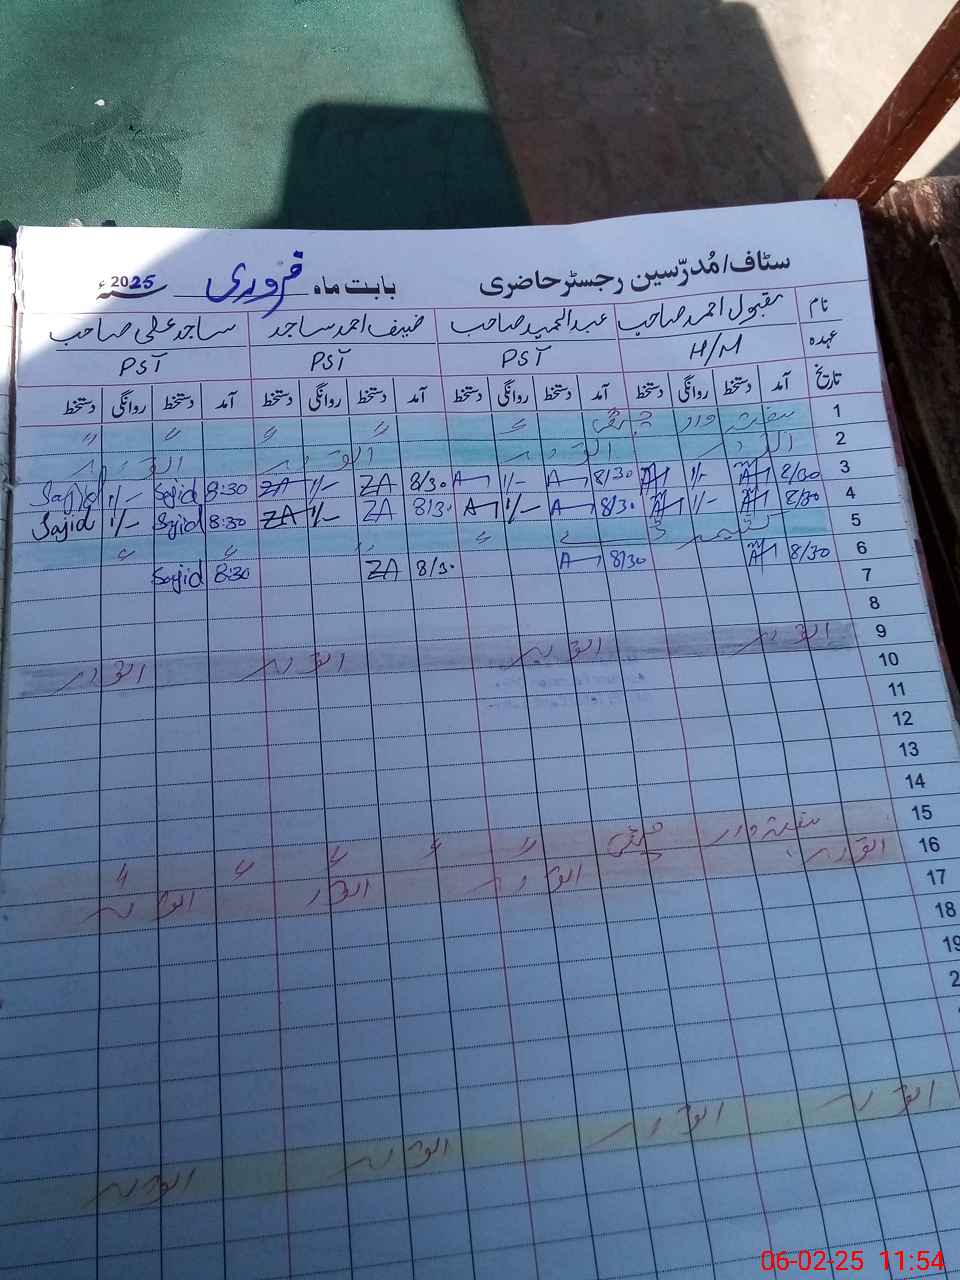 سٹاف/مُدرّسین رجسٹر حاضری بابت ماہ فروری 2025ء
نام مقبول احمد صاحب عبدالحمید صاحب ضیف احمد ساجد ساجد علی صاحب
عہدہ H/M PST PST PST
تاریخ آمد دستخط روانگی دستخط آمد دستخط روانگی دستخط آمد دستخط روانگی دستخط آمد دستخط روانگی دستخط
1 ہفتہ وار چھٹی " " " " "
2 اتوار اتوار اتوار اتوار
3 8/30 1/- 8/30 A 1/- A 8/30 ZA 1/- ZA 8:30 Sajid 1/- Sajid
4 8/30 1/- 8/30 A 1/- A 8/30 ZA 1/- ZA 8:30 Sajid 1/- Sajid
5 کشمیر ڈے " " " "
6 8/30 8/30 A 8/30 ZA 8:30 Sajid
7
8
9 اتوار اتوار اتوار اتوار
10
11
12
13
14
15 ہفتہ وار چھٹی " " " " "
16 اتوار اتوار اتوار اتوار
17
18
19
2
اتوار اتوار اتوار اتوار
06-02-25 11:54